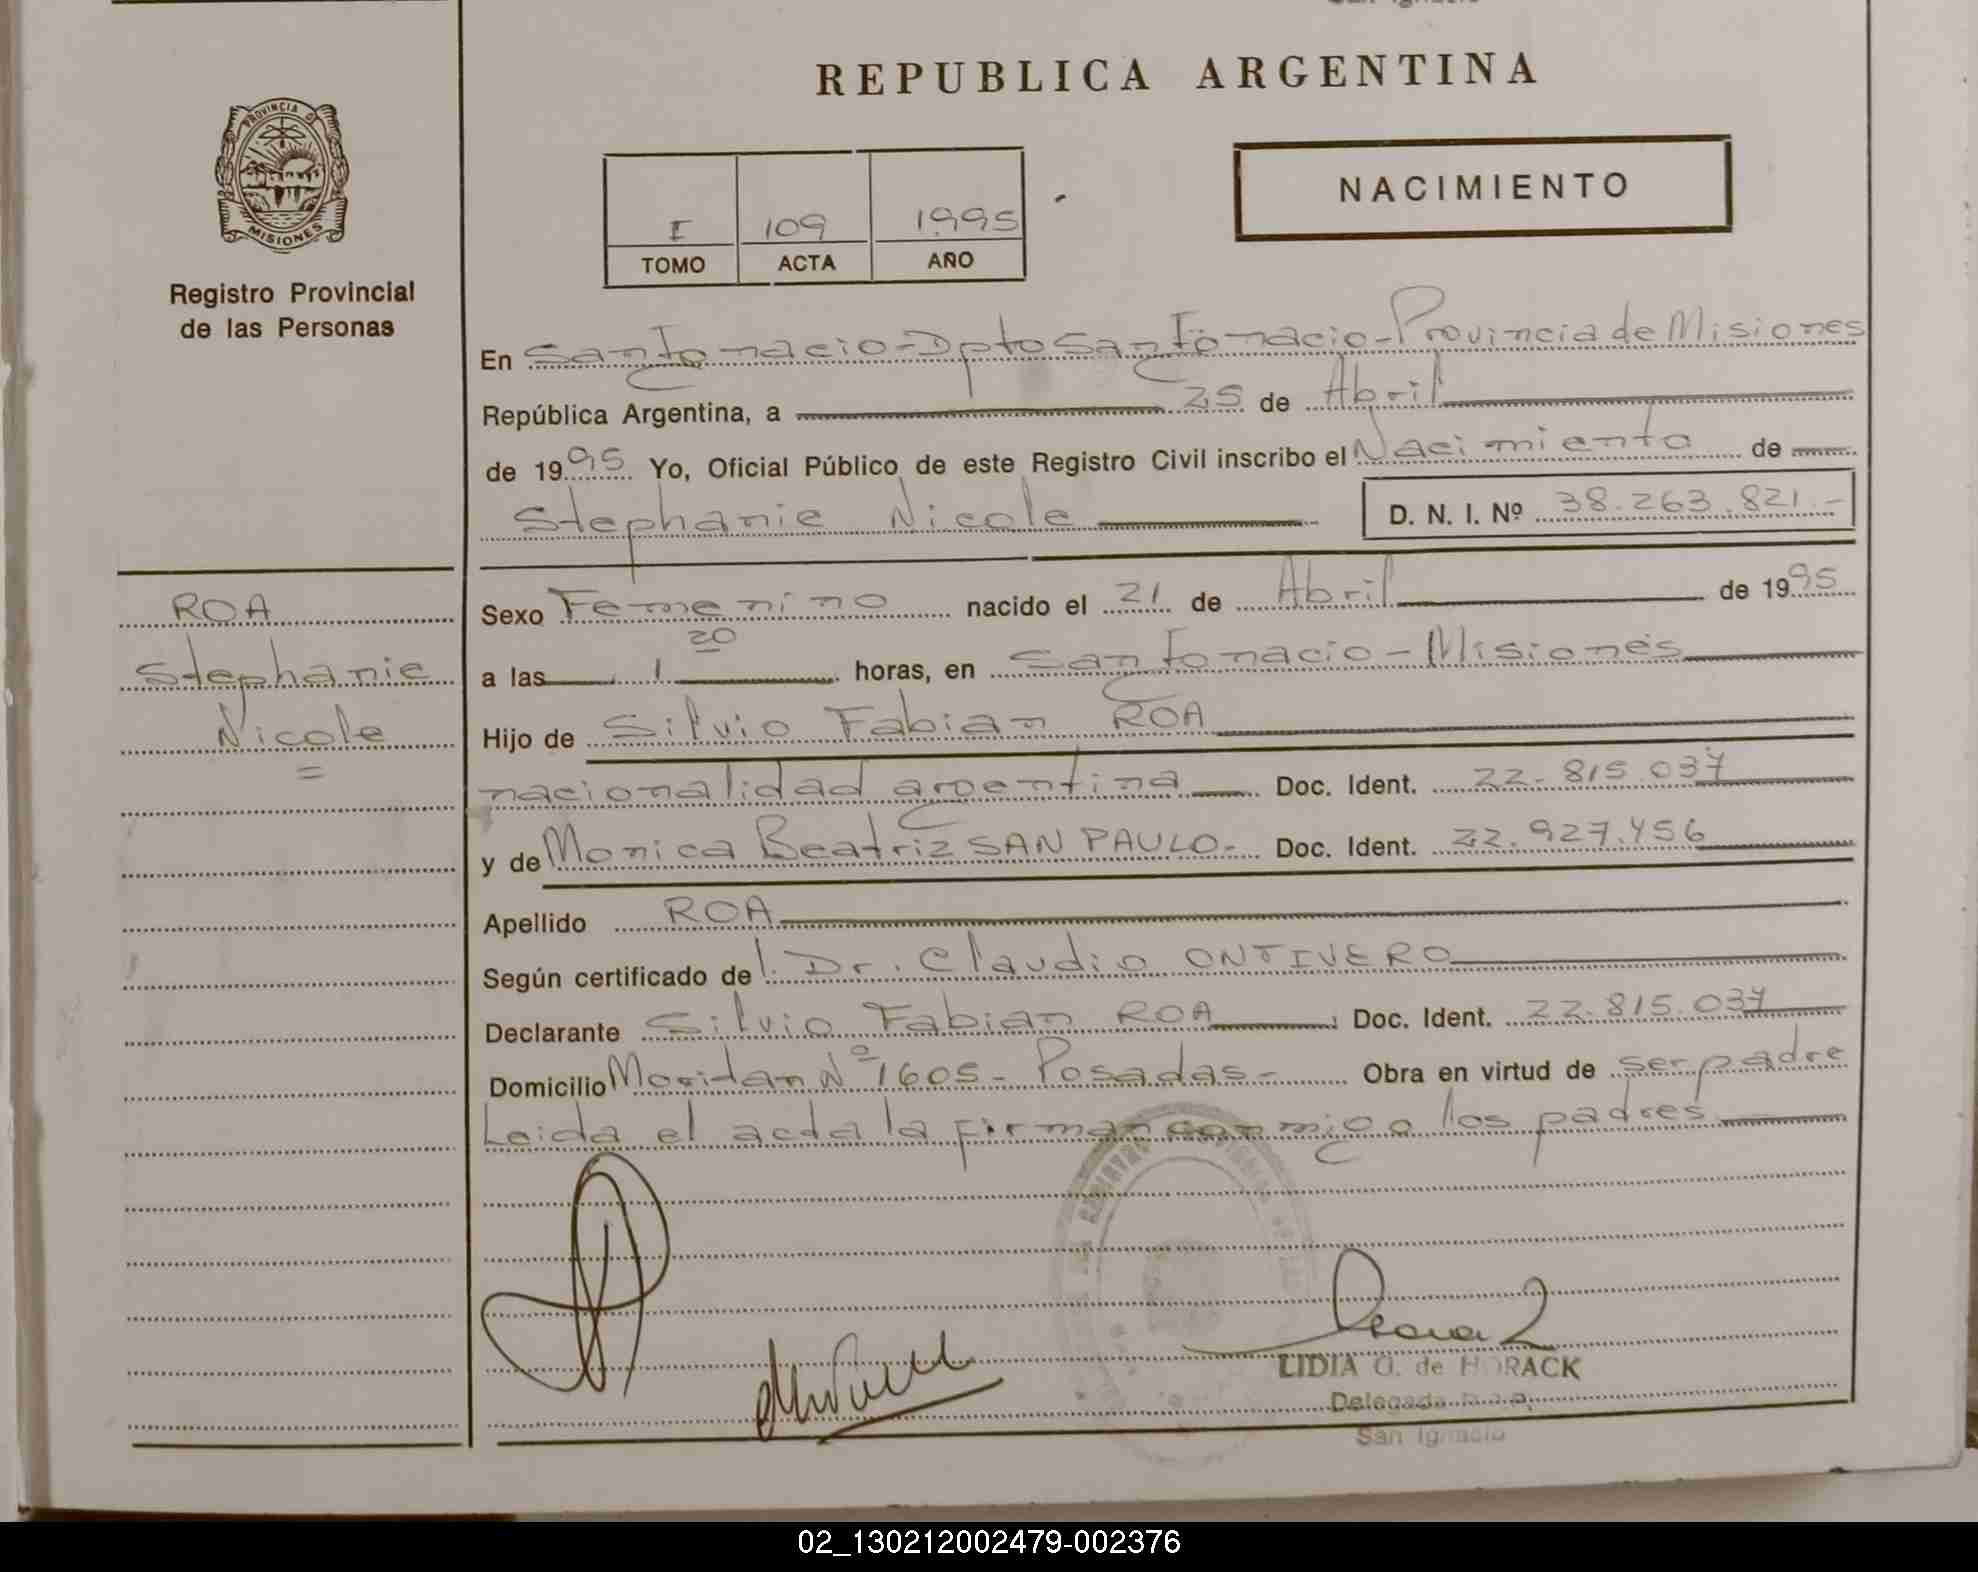 REPUBLICA ARGENTINA
PROVINCIA DE
MISIONES
Registro Provincial
de las Personas
NACIMIENTO
I 109 1995
TOMO ACTA AÑO
En San Ignacio - Dpto San Ignacio - Provincia de Misiones
República Argentina, a 25 de Abril
de 1995 Yo, Oficial Público de este Registro Civil inscribo el Nacimiento de
Stephanie Nicole D. N. I. Nº 38.263.821.-
ROA
Stephanie
Nicole
=
Sexo Femenino nacido el 21 de Abril de 1995
a las 1 20 horas, en San Ignacio - Misiones
Hijo de Silvio Fabian ROA
nacionalidad argentina Doc. Ident. 22.815.037
y de Monica Beatriz SAN PAULO.- Doc. Ident. 22.927.456
Apellido ROA
Según certificado de Dr. Claudio ONTIVERO
Declarante Silvio Fabian ROA Doc. Ident. 22.815.037
Domicilio Nº 1605 - Posadas - Obra en virtud de ser padre
Leida el acta la firman conmigo los padres
LIDIA G. de HORACK
Delegada R.P.P.
San Ignacio
02_130212002479-002376